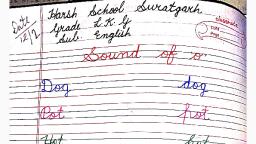 Harsh School Suratgarh
Date
12/2
Grade L.K.G
Sub: English
Sound of o
Dog dog
Pot pot
Hot hot